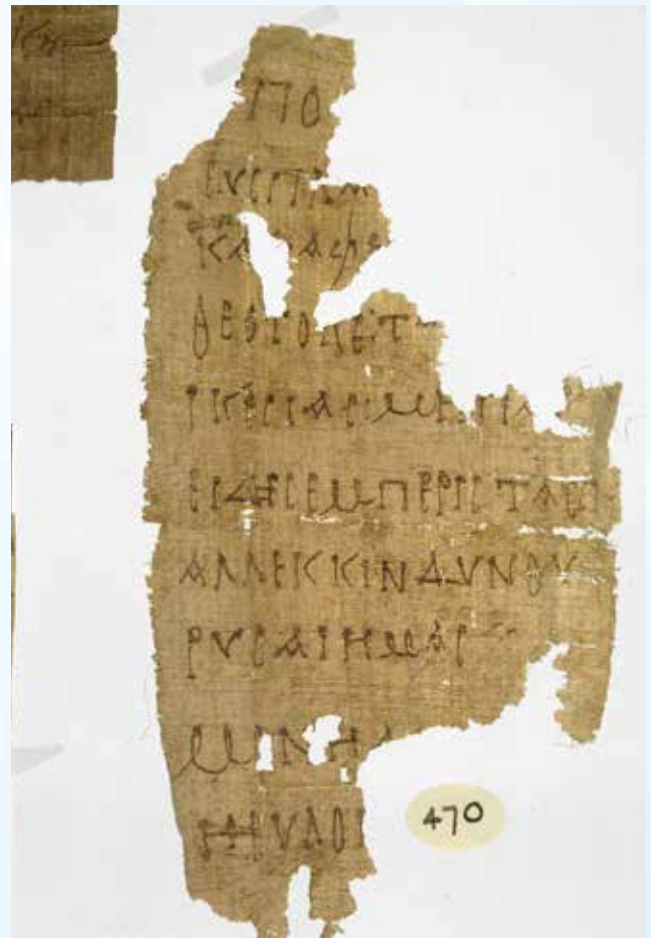 ΠΟ
ΕΥCΠΛ
ΚΑ ΑΦΕ
ΘΕΟΤΟΚΕΤ
ΙΚΕCΙΑCΜΗΠΑΡ
ΕΙΔΗCΕΜΠΕΡΙCΤΑCΕΙ
ΑΛΛΕΚΚΙΝΔΥΝΟΥ
ΡΥCΑΙΗΜΑC
ΜΟΝΗ
ΗΕΥΛΟ
470